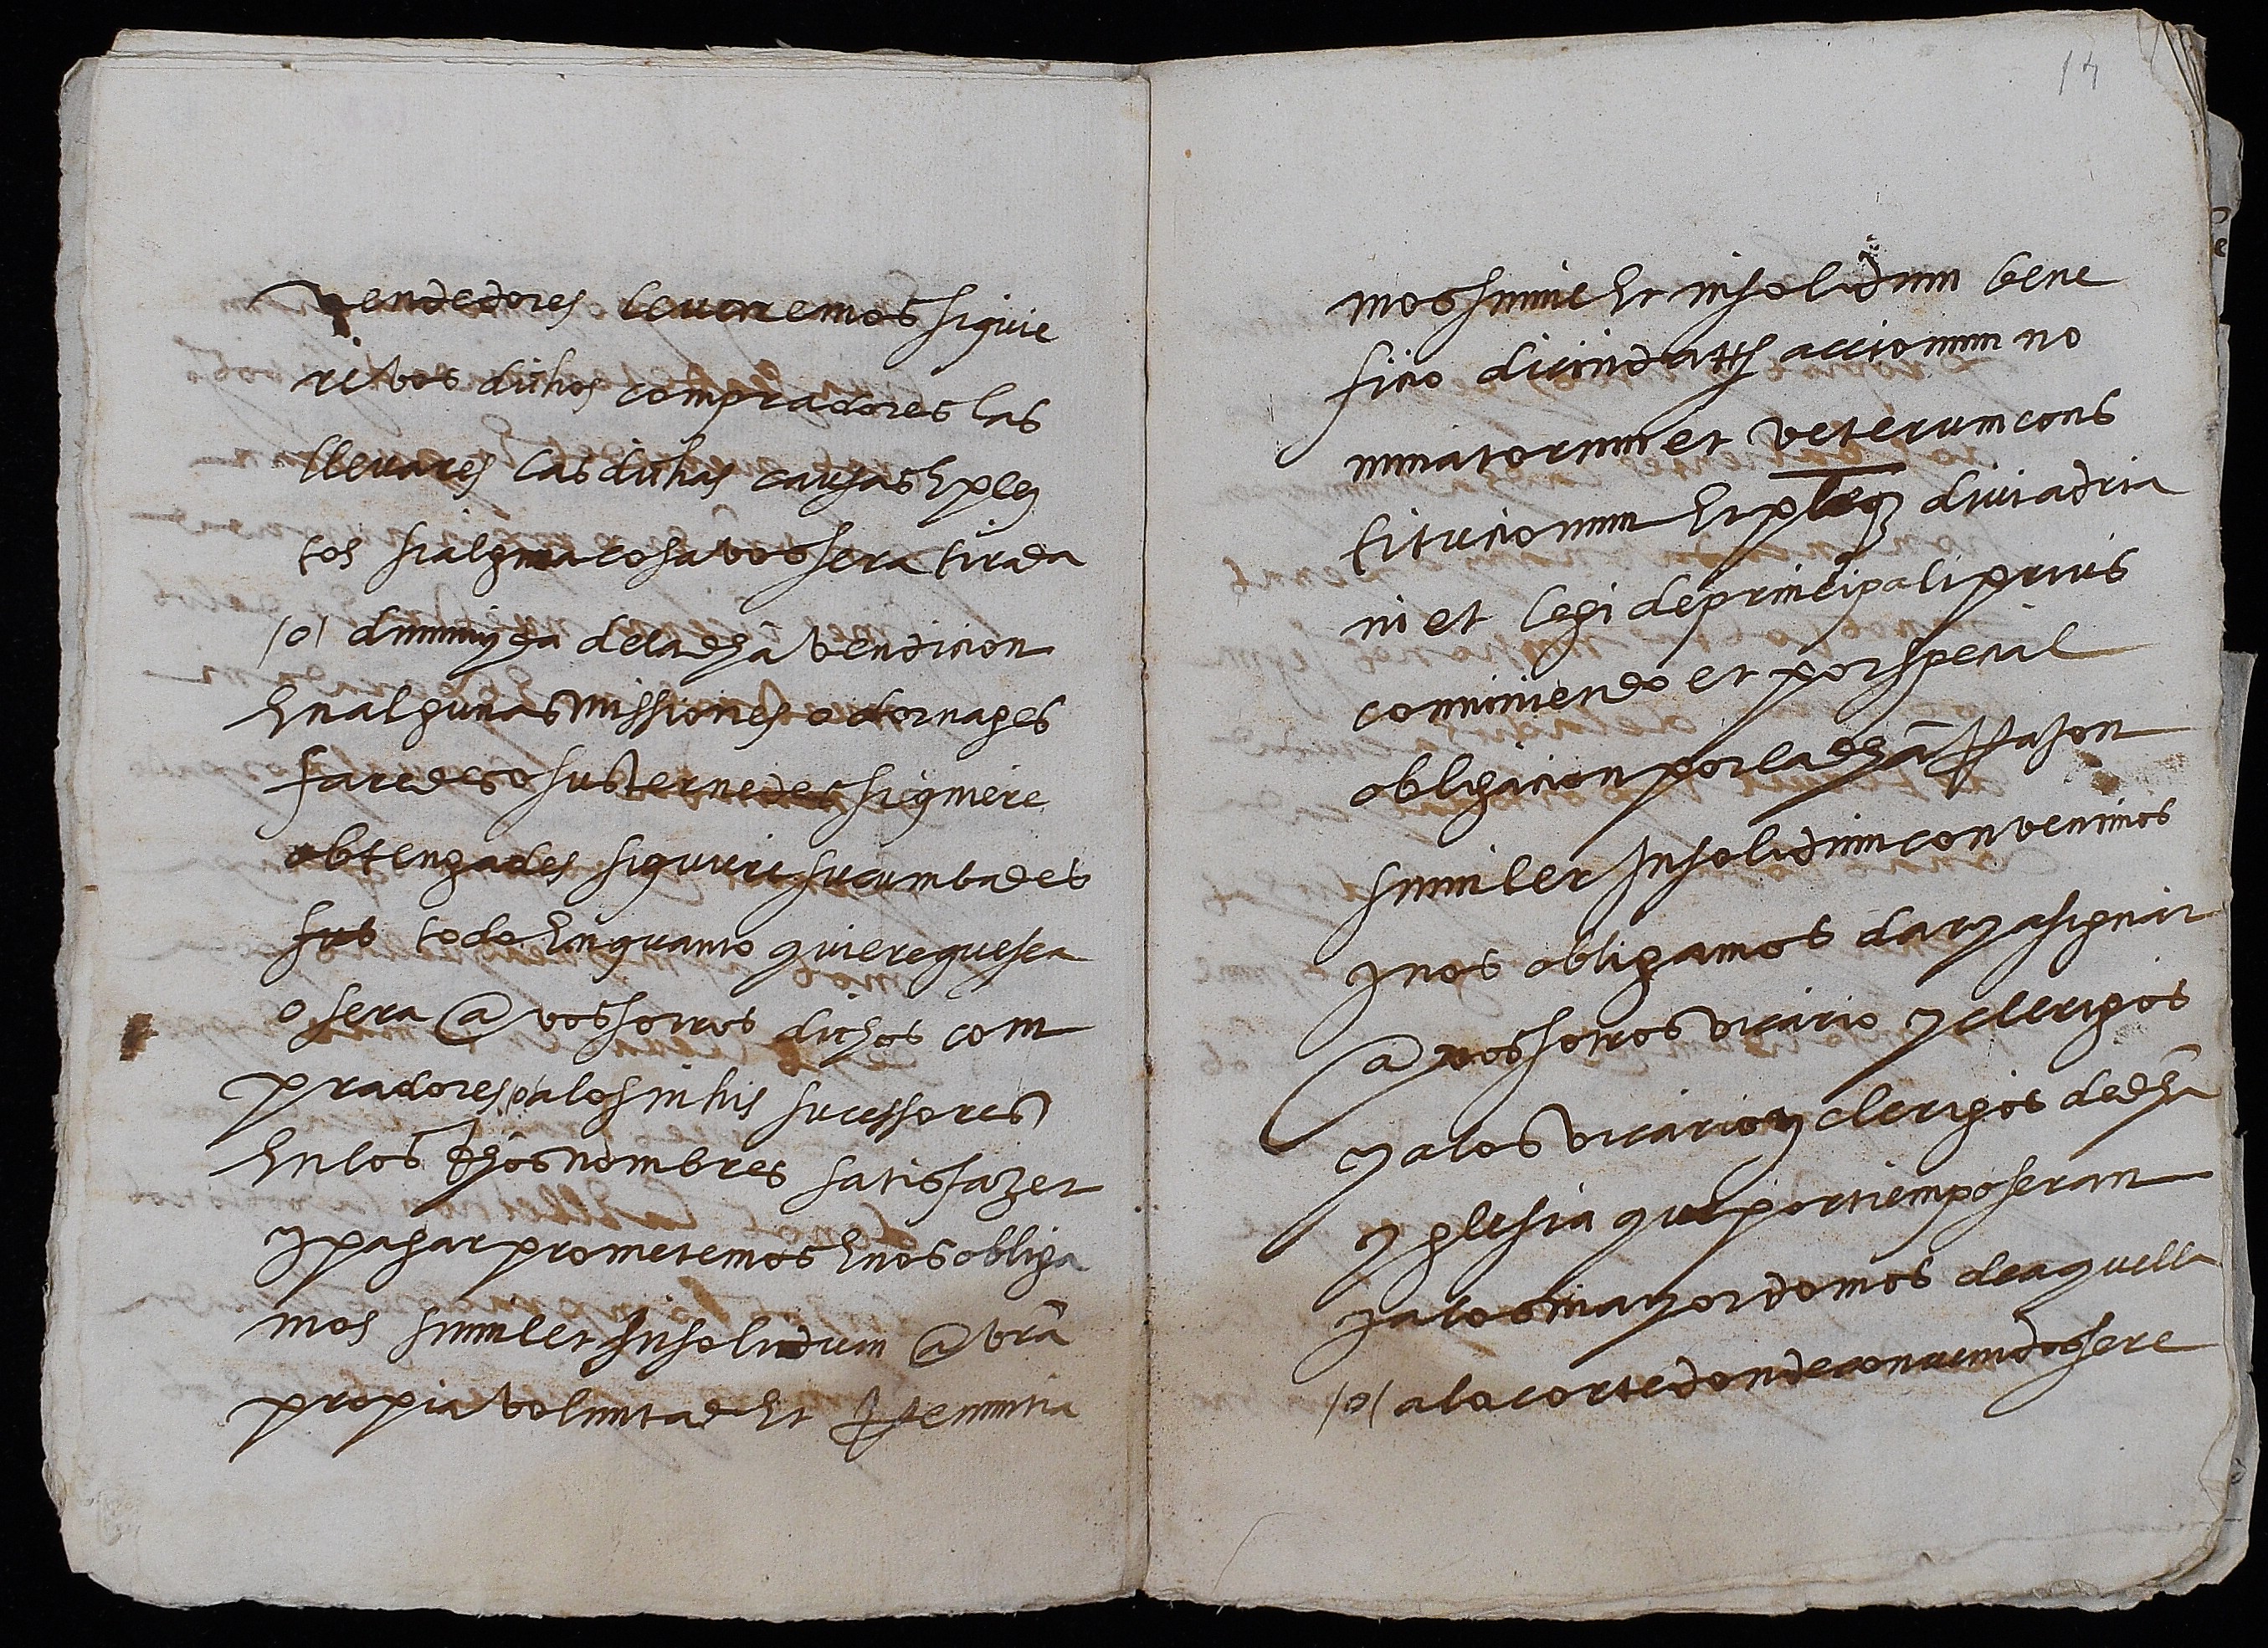 vendedores levarremos siquie
re vos dichos compradores las
llevares las dichas causas E pley
tos si alguna cosa vos sera tirada
/o/ diminuyda dela dha vendicion
En algunas missiones o dornages
faredes o susternedes siquiere
obtengades siquiere sucumbades
sus todo En quanto quiere que sea
o sera @ vos sotros dichos com
pradores /o/ alos in his sucessores
En los dhos nombres satisfazer
y pagar prometemos E nos obliga
mos simul et insolidum @ vra
propia voluntad Et Renuntia
14
mos simul Et insolidum bene
ficio dividendarum accionum no
minatorum et veterum cons
titucionum Et pley divi adria
ni et legi de principali prius
conviniendo et por special
obligacion por la dha Rason
simul et Insolidum convenimos
y nos obligamos dar y asignar
@ vos sotros vicario y clerigos
y alos vicario y clerigos de dha
yglesia que por tiempo seran
y alos mayordomos de aquella
/o/ ala corte donde convenidos sere